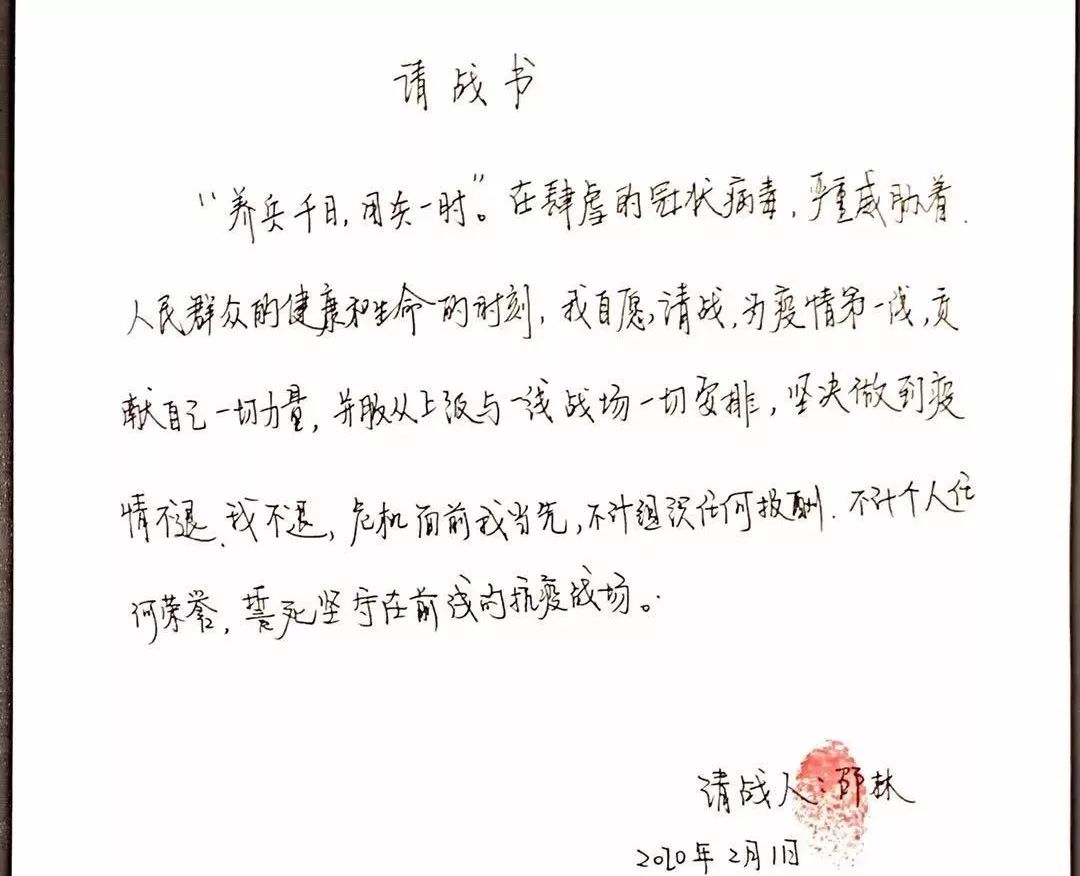 请战书
“养兵千日,用兵一时”。在肆虐的冠状病毒,严重威胁着
人民群众的健康和生命的时刻,我自愿请战,为疫情第一线,贡
献自己一切力量,并服从上级与一线战场一切安排,坚决做到疫
情不退、我不退,危机面前我当先,不计组织任何报酬.不计个人任
何荣誉,誓死坚守在前线的抗疫战场。
请战人:邵林
2020年2月1日